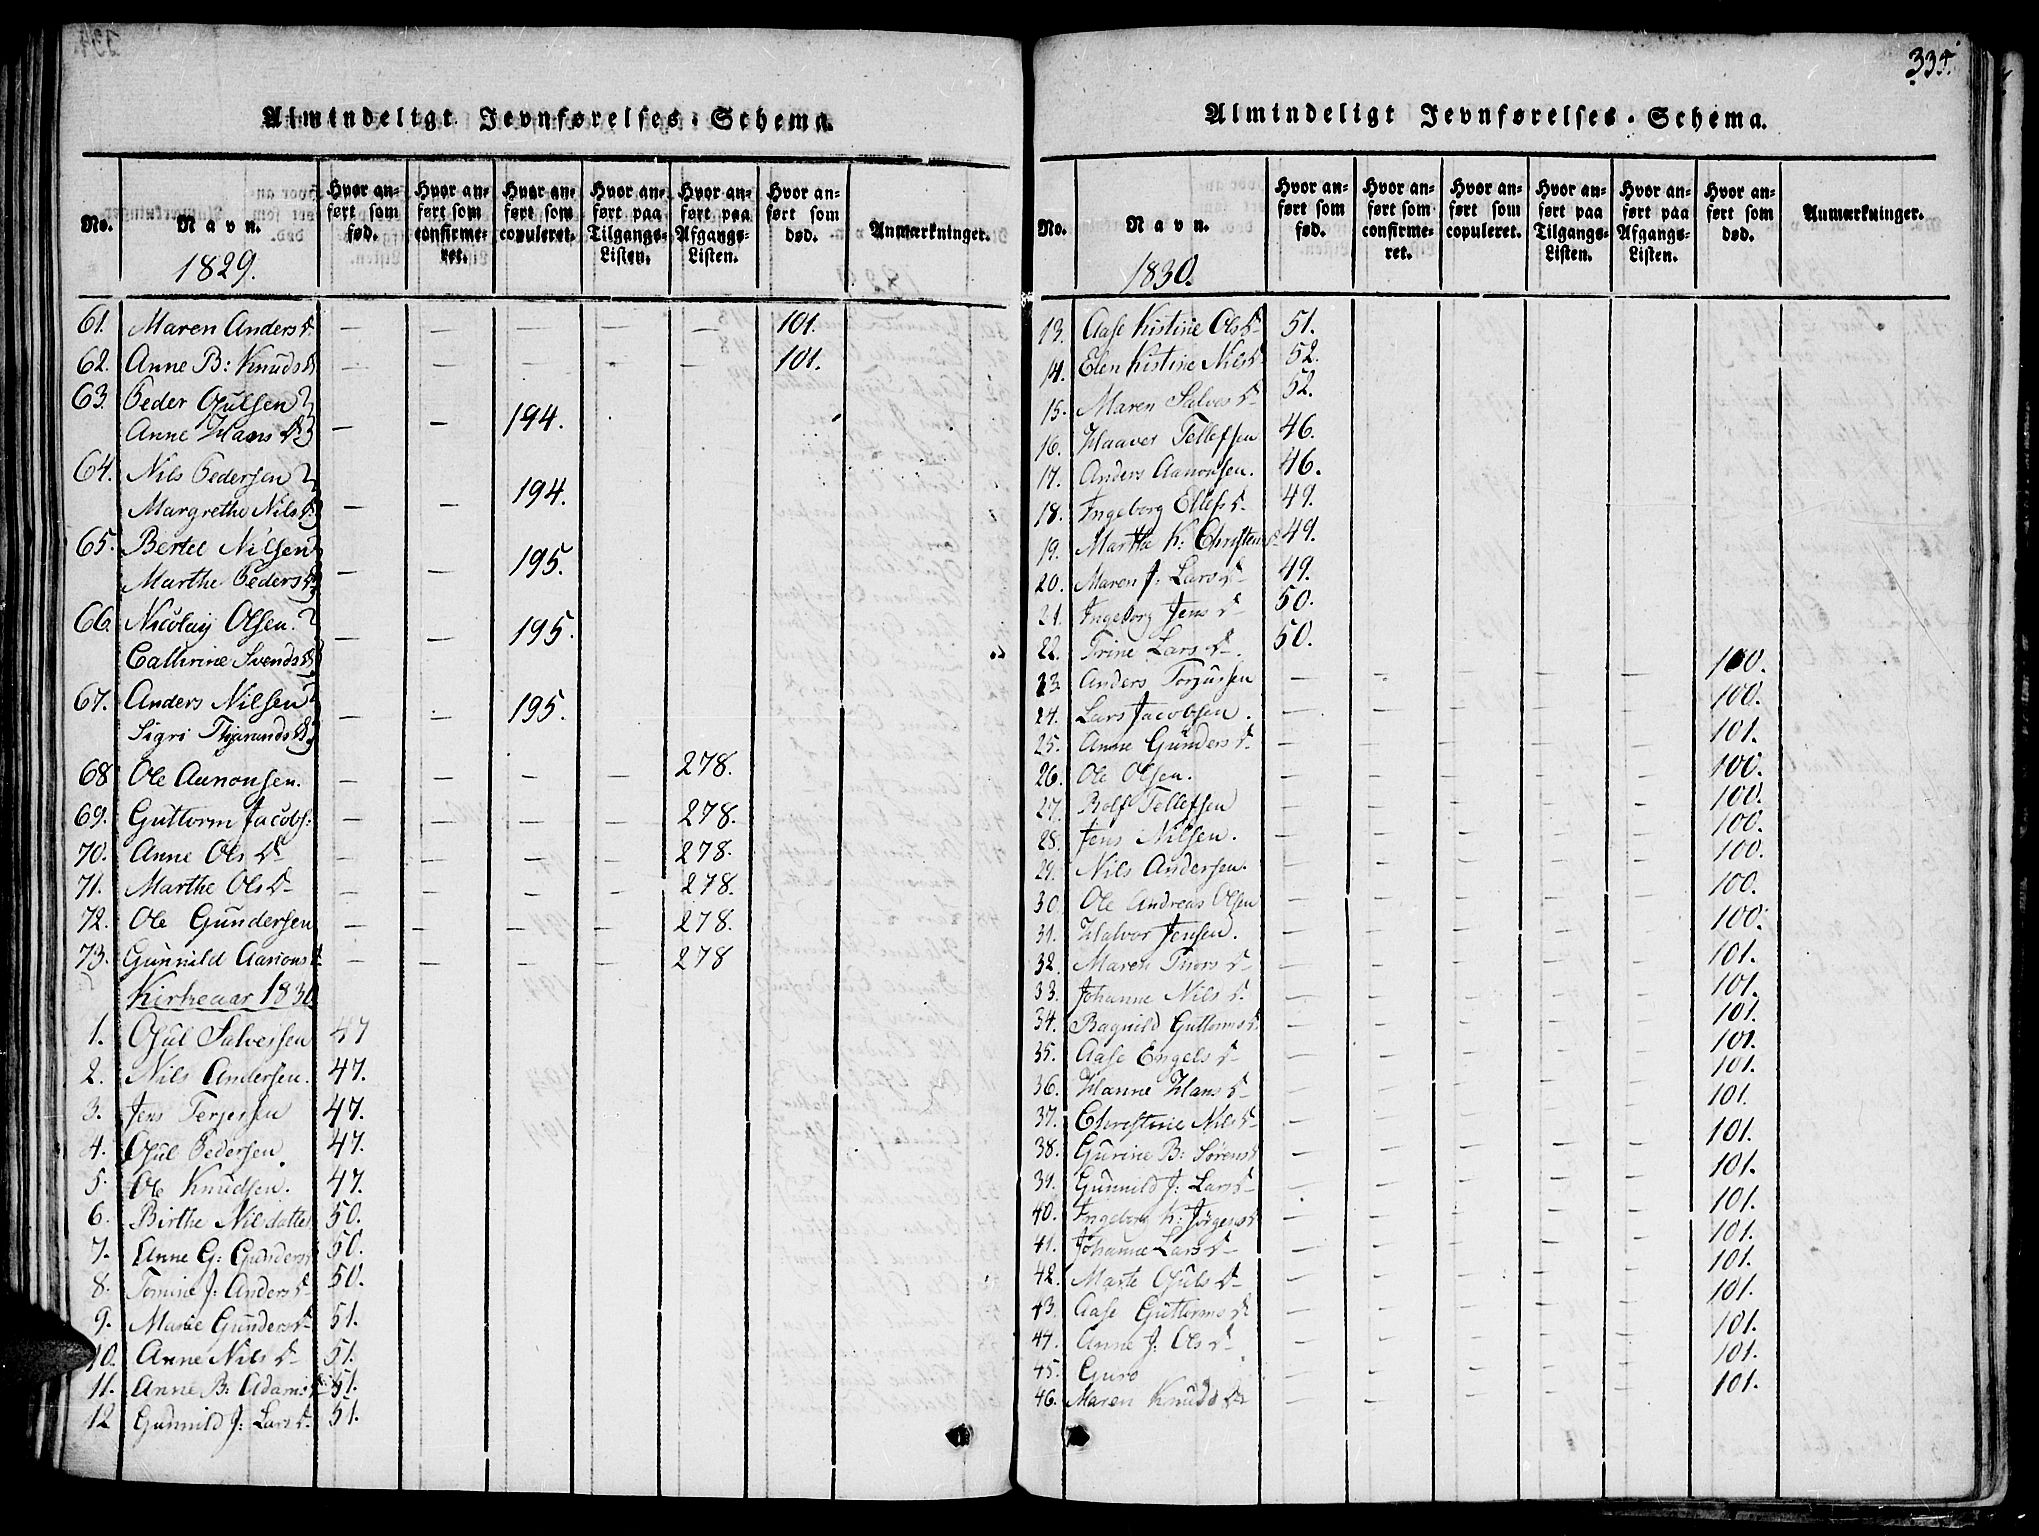 Almindeligt Jevnførelses-Schema.
No. Navn. Hvor anført som fød. Hvor anført som confirmeret. Hvor anført som copuleret. Hvor anført paa Tilgangs-Listen. Hvor anført paa Afgangs-Listen. Hvor anført som død. Anmærkninger.
1829.
61. Maren Anders D. — — — — — 101.
62. Anne B: Knuds D — — — — — 101.
63. Peder Osulsen
Anne Hans D. — — 194.
64. Nils Pedersen
Margrethe Nils D. — — 194.
65. Bertel Nilsen
Marthe Peders D. — — 195.
66. Nicolay Olsen.
Cathrine Svends D. — — 195.
67. Anders Nilsen
Sigri Thjøranda D. — — 195.
68 Ole Aanonsen. — — — — 278.
69. Guttorm Jacobs: — — — — 278.
70. Anne Ols D. — — — — 278.
71. Marthe Ols D. — — — — 278.
72. Ole Gundersen — — — — 278.
73. Gunnild Aanons D. — — — — 278
Kirkeaar 1830
1. Osul Salvessen 47
2. Nils Andersen. 47.
3. Jens Terjesen 47.
4. Osul Pedersen. 47.
5. Ole Knudsen. 47.
6. Birthe Nilsdatter 50.
7. Anne G: Gunders D. 50.
8. Tomine J. Anders D. 50.
9. Marie Gunders D. 51.
10. Anne Nils D. 51.
11. Anne B: Adams D. 51.
12 Gunnild J: Lars D. 51.
335.
Almindeligt Jevnførelses-Schema.
No. Navn. Hvor anført som fød. Hvor anført som confirmeret. Hvor anført som copuleret. Hvor anført paa Tilgangs-Listen. Hvor anført paa Afgangs-Listen. Hvor anført som død. Anmærkninger.
1830.
13. Aase Kistine Ols D. 51.
14. Elen Kistine Nils D. 52.
15. Maren Salves D. 52.
16. Haaver Tellefsen 46.
17. Anders Aanonsen. 46.
18. Ingeborg Ellefs D. 49.
19. Martha K: Christens D. 49.
20. Maren J: Lars D. 49.
21. Ingeborg Jens D. 50.
22. Trine Lars D. 50.
23. Anders Torjussen — — — — — 100.
24. Lars Jacobsen. — — — — — 100.
25. Anne Gunders D. — — — — — 101.
26. Ole Olsen. — — — — — 100.
27. Rolf Tellefsen — — — — — 100.
28. Jens Nilsen. — — — — — 100.
29. Nils Andersen. — — — — — 100.
30. Ole Andreas Olsen — — — — — 100.
31. Halvor Jensen. — — — — — 100.
32. Maren Thors D. — — — — — 101.
33. Johanne Nils D. — — — — — 101.
34. Ragnild Guttorms D. — — — — — 101.
35. Aase Engels D. — — — — — 101.
36. Hanne Hans D. — — — — — 101.
37. Christine Nils D. — — — — — 101.
38. Gurine B: Sørens D — — — — — 101.
39. Gunnild J: Lars D. — — — — — 101.
40. Ingeborg K: Jørgens D — — — — — 101.
41. Johanne Lars D. — — — — — 101.
42. Marte Osuls D. — — — — — 101.
43. Aase Guttorms D. — — — — — 101.
44. Anne J. Ols D. — — — — — 101.
45. Guro — — — — — 101.
46. Maren Knuds D. — — — — — 101.